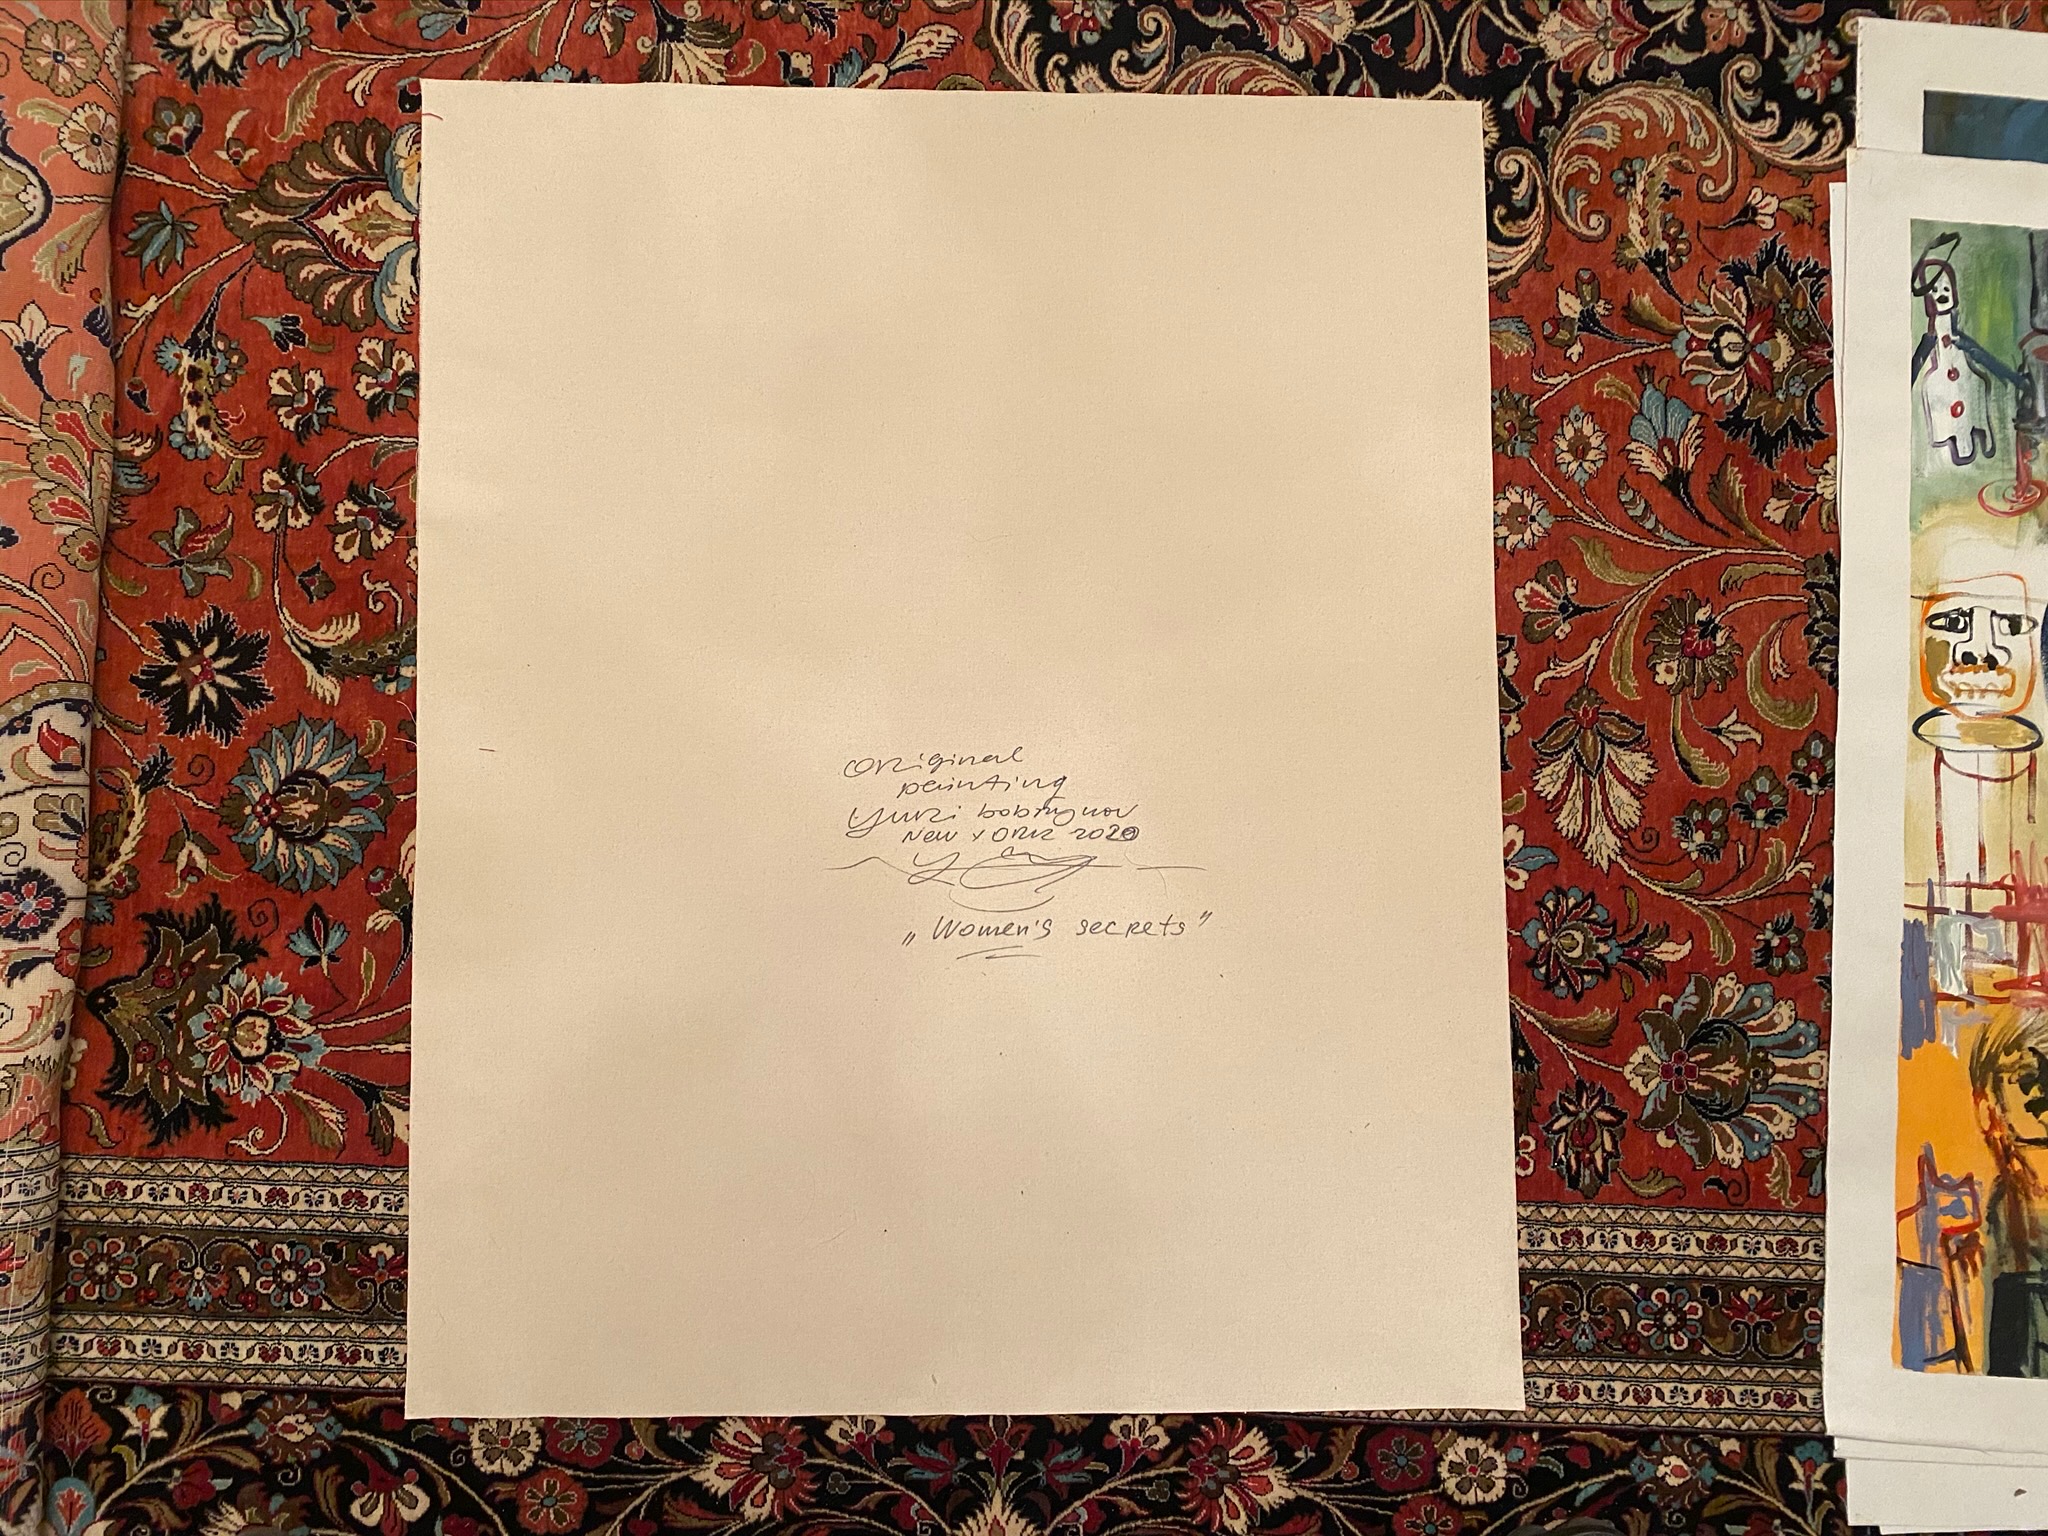 Original
painting
Yuri bobrynov
New YORK 2020
„Women's secrets"